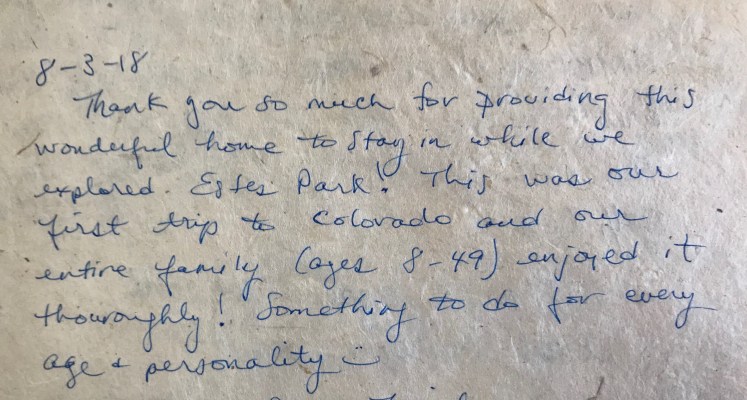 8-3-18
Thank you so much for providing this
wonderful home to stay in while we
explored Estes Park! This was our
first trip to Colorado and our
entire family (ages 8-49) enjoyed it
thouroughly! Something to do for every
age & personality :)